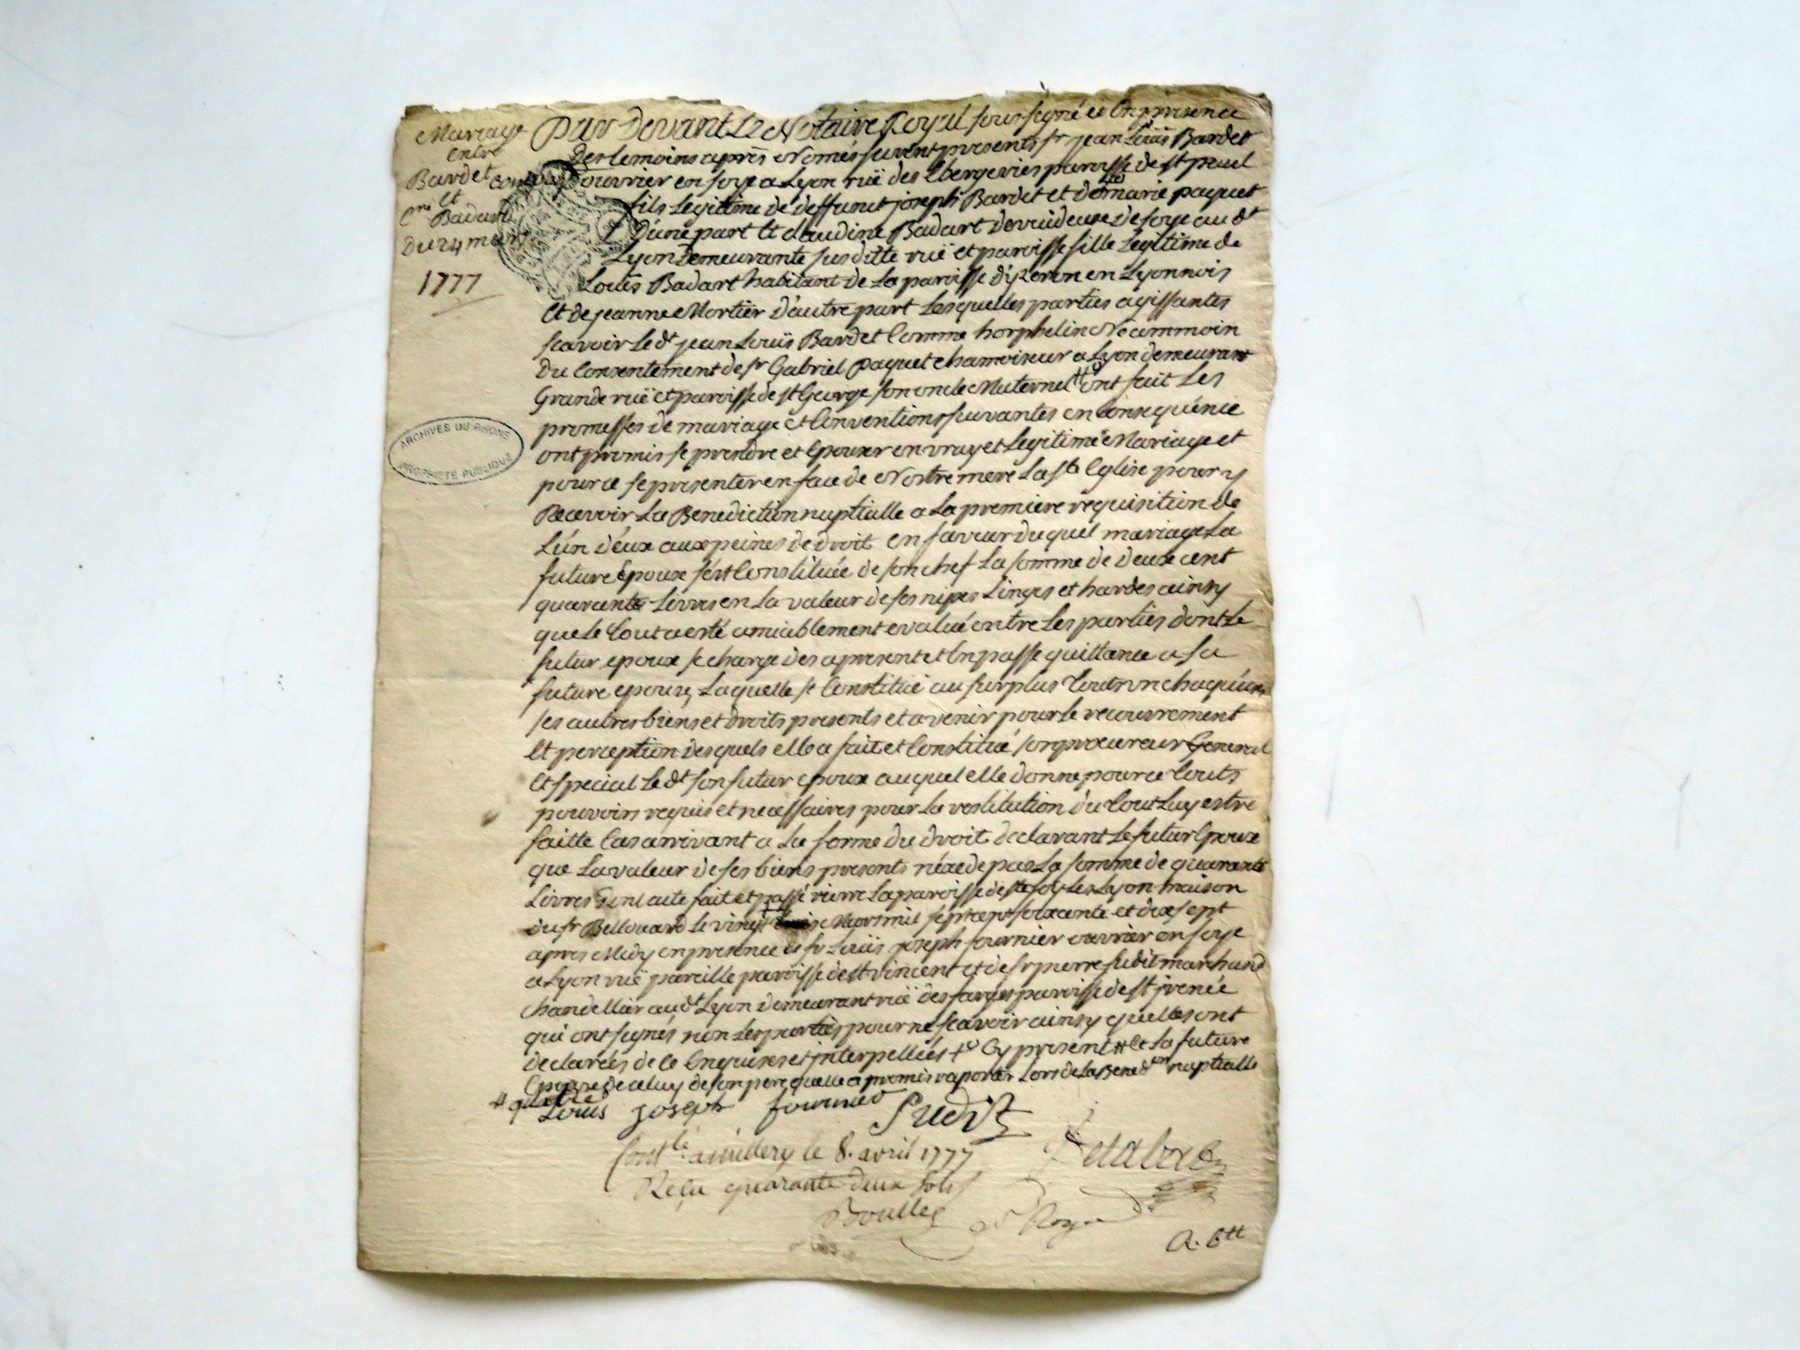 Mariage
entre
Bardet
et
Badart
Du 24 mars
1777
ARCHIVES DU RHONE
PROPRIETE PUBLIQUE
Par Devant Le Notaire Royal soussigné et En presence
Des temoins apres Només furent presents sr jean Loüis Bardet
ouvrier en soye a Lyon ruë des Ebergeries paroisse de st paul
fils Legitime de deffunt joseph Bardet et de marie paquet
D'une part Et claudine Badart Devuideuse de soye au dt
Lyon Demeurante susditte ruë et paroisse fille Legitime de
Loüis Badart habitant de La paroisse d'izeron en Lyonnois
Et de jeanne Mortier D'autre part Lesquelles parties agissantes
scavoir Le dt jean Loüis Bardet Comme horphelin Neammoin
Du Consentement de sr Gabriel paquet chamoiseur a Lyon demeurant
Grande ruë et paroisse de st George son oncle Maternel ont fait Les
promesses de mariage et Conventions suivantes en Consequénce
ont promis se prendre et Epouser en vray et Legitime Mariage et
pour ce se presenter en face de Nostre mere La ste Eglise pour y
Recevoir La Benediction nuptialle a La premiere requisition de
L'un d'eux aux peines de droit en faveur du quel mariage La
future Epouse s'est Constituée de son chef La somme de deux cent
quarante Livres en La valeur de ses nipes Linges et hardes ainsy
que le tout a esté amiablement evalué entre Les parties dont Le
futur epoux se charge des a present et En passe quittance a sa
future epouse, Laquelle se Constitue au surplus tout un chaqu'un
ses autres biens et droits presents et avenir pour Le recouvrement
Et perception desquels elle a fait et Constitué son procureur General
Et special Le dt son futur epoux auquel elle donne pour ce touts
pouvoirs requis et necessaires pour La restitution du tout Luy estre
faitte Cas arrivant a La forme du droit declarant Le futur Epoux
que La valeur de ses biens presents n'exede pas La somme de quarante
Livres Dont acte fait et passé riere La paroisse de ste foy Les Lyon maison
du sr Bellouard Le vingt Mars mil sept cent soixante et dix sept
apres Midy en presence de sr Loüis joseph fournier ouvrier en soye
a Lyon ruë pareille paroisse de st vincent et de sr pierre sudit marchand
chandellier au dt Lyon demeurant ruë des farges paroisse de st jrenée
qui ont signés non Les parties pour ne scavoir ainsy quelles ont
declarées de ce Enquises et interpellées Cy present et La future
Epouse de celuy de son pere quelle a promis raporter Lors de La Bened on nuptialle
Loüis joseph fournier
Sudit
Contlé a millery le 8. avril 1777
Reçu quarante deux sols
Delabore
A. 6tt